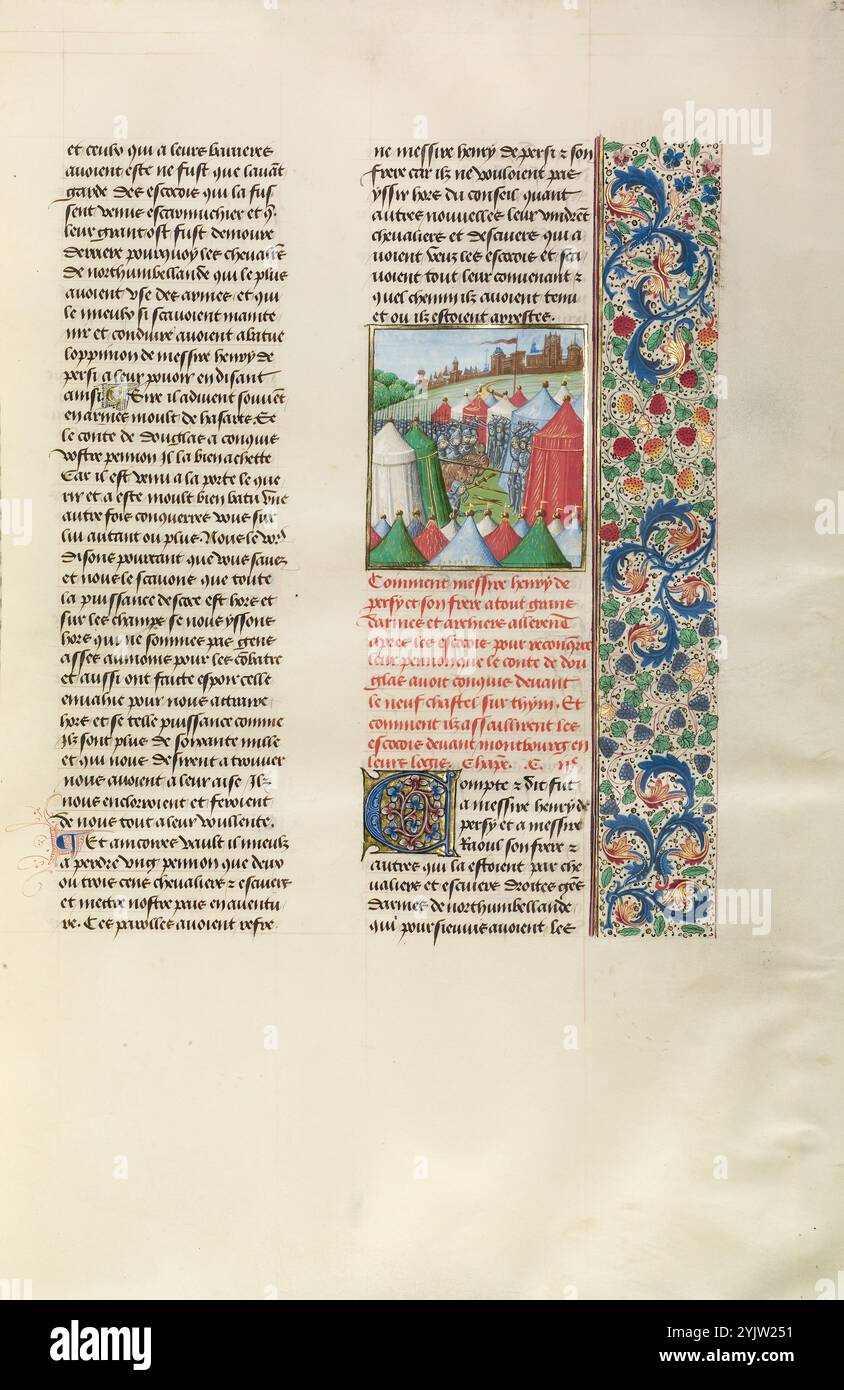 et ceulx qui a leurs barrieres
avoient este ne fust que lavant
garde des escocois qui la fus
sent venus escarmuchier et q̄
leur grant ost fust demoure
derriere pourquoy les chevalie͛s
de northumbellande qui le plus
avoient use des armes et qui
le mieulx si scavoient mainte
nir et conduire avoient abatue
loppinion de messire henry de
persi a leur povoir en disant
ainsi Sire il advient souvēt
en armes moult de hasars. Se
le conte de douglas a conquis
vostre pennon il la bien achette
Car il est venu a la porte le que
rir et a este moult bien batu vne
autre fois conquerres vous sur
lui autant ou plus. Nous le vo9
disons pourtant que vous savez
et nous le scavons que toute
la puissance descoce est hors et
sur les champs se nous yssons
hors qui ne sommes pas gens
asses aumoins pour les cōbatre
et aussi ont faitte espoir celle
envahie pour nous attraire
hors et se telle puissance comme
ilz sont plus de soixante mille
et qui nous desirent a trouver
nous avoient a leur aise Ilz
nous encloroient et feroient
de nous tout a leur voullente.
Et aincores vault il mieulz
a perdre vng pennon que deux
ou trois cens chevaliers ⁊ escuiers
et mettre nostre pais en aventu
re. Ces parolles avoient refre
ne messire henry de persi ⁊ son
frere car ilz ne vouloient pas
yssir hors du conseil quant
autres nouvelles leur vindrēt
chevaliers et descuiers qui a
voient veuz les escocois et sca
voient tout leur convenant ⁊
quel chemin ilz avoient tenu
et ou ilz estoient arrestes.
Comment messire henry de
persy et son frere a tout grans
darmes et archiers allerent
apres les escocois pour reconq̄rre
leur pennon que le conte de dou
glas avoit conquis devant
le neuf chastel sur thym. Et
comment ilz assaillirent les
escocois devant montbourg en
leurs logis. Chapr̄e. C.
Compte ⁊ dit fut
a messire henry de
persy et a messire
Raoul son frere ⁊
autres qui la estoient par che
valiers et escuiers droites gēs
darmes de northumbellande
qui poursieuvis avoient les
alamy
Image ID: 2YJW251
www.alamy.com